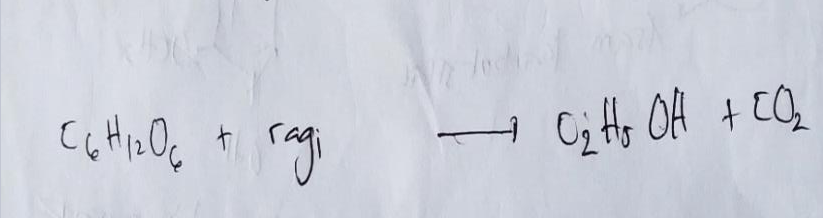 C₆H₁₂O₆ + ragi → C₂H₅OH + CO₂